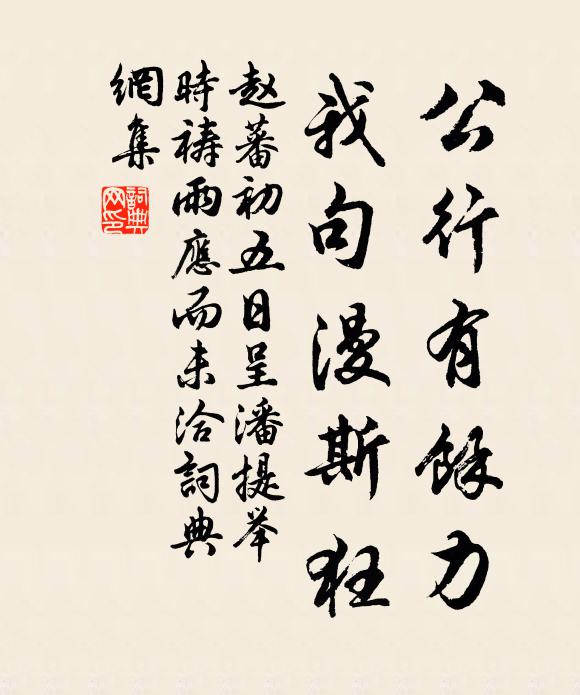 公行有餘力
我句漫斯狂
赵蕃初五日呈潘提举
時祷雨應而未洽詞典
網集
詞典
网印